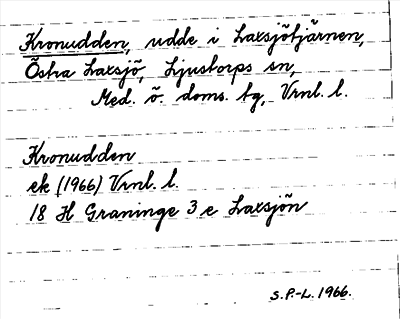 Kronudden, udde i Laxsjötjärnen,
Östra Laxsjö, Ljustorps sn,
Med. ö. doms. tg, Vrnl. l.
Kronudden
ek (1966) Vrnl. l.
18 H Graninge 3 e Laxsjön
S.P.-L. 1966.